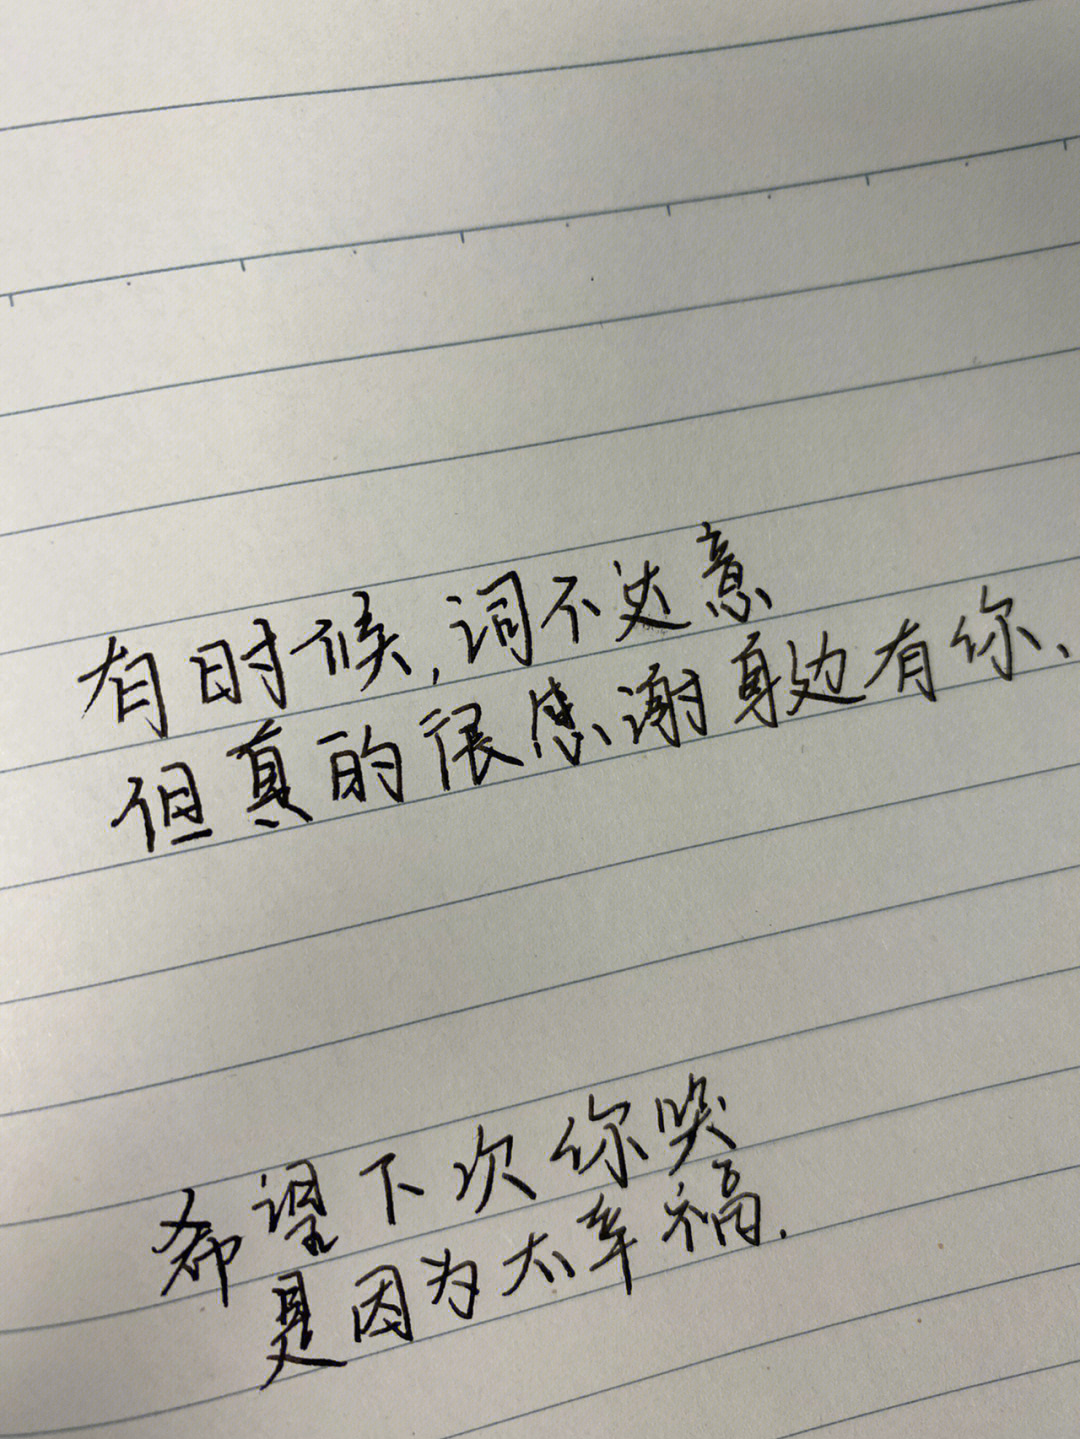 有时候,词不达意
但真的很感谢身边有你、
希望下次你哭
是因为太幸福.